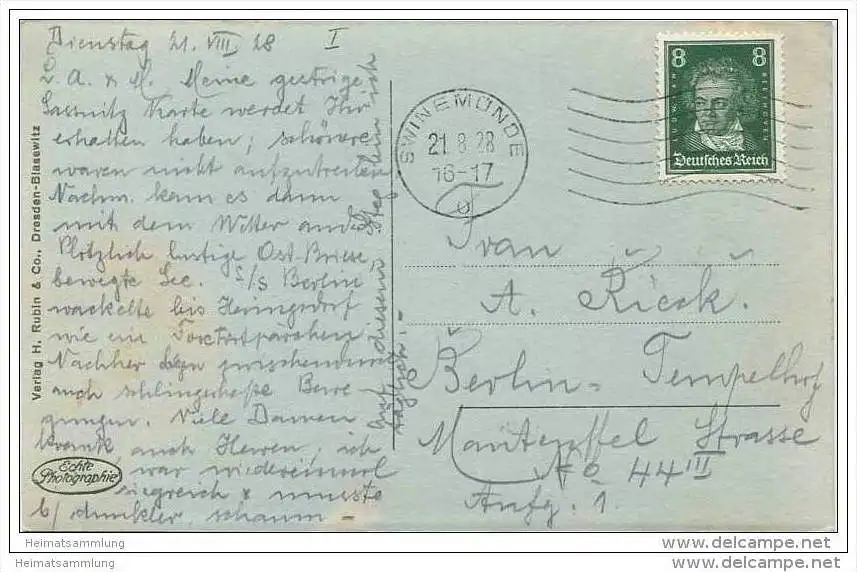 Dienstag 21. VIII 28 I
L. A. & M. Meine gestrige
Sassnitz Karte werdet Ihr
erhalten haben; schönere
waren nicht aufzutreiben
Nachm. kam es dann
mit dem Wetter anders
Plötzlich lustige Ost-Briese,
bewegte See. S/S Berlin
wackelte bis Heringsdorf
wie ein
Nachher zwischendurch
auch schlingerhafte Bewe-
gungen. Viele Damen
krank auch Herren, ich
war wiedereinmal
siegreich & musste
b/ dunkler, schaum-
Auf diesem Steg bin ich
täglich.-
Verlag H. Rubin & Co., Dresden-Blasewitz
Echte
Photographie
SWINEMÜNDE
21.8.28
16-17
8 8
LUDWIG VAN BEETHOVEN
Deutsches Reich
Frau
A. Rieck.
Berlin-Tempelhof
Manteuffel Strasse
No 44 III
Aufg. 1.
Heimatsammlung
Heimatsammlung
www.delcampe.net
www.delcampe.net